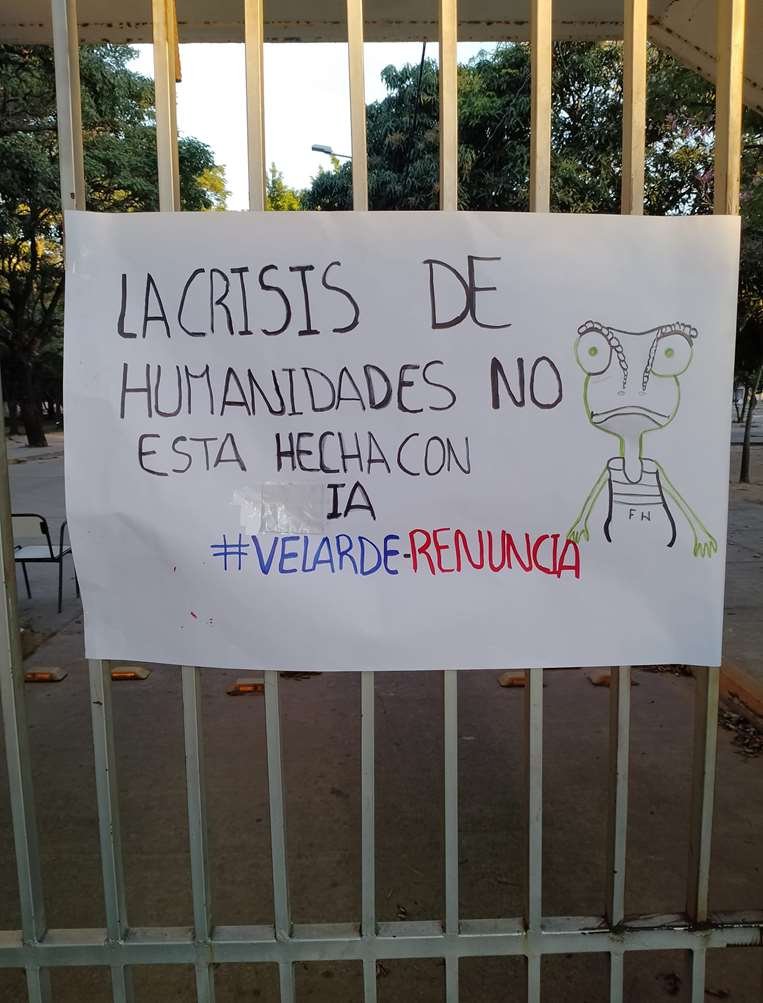 LA CRISIS DE
HUMANIDADES NO
ESTA HECHA CON
IA
#VELARDE-RENUNCIA
F H